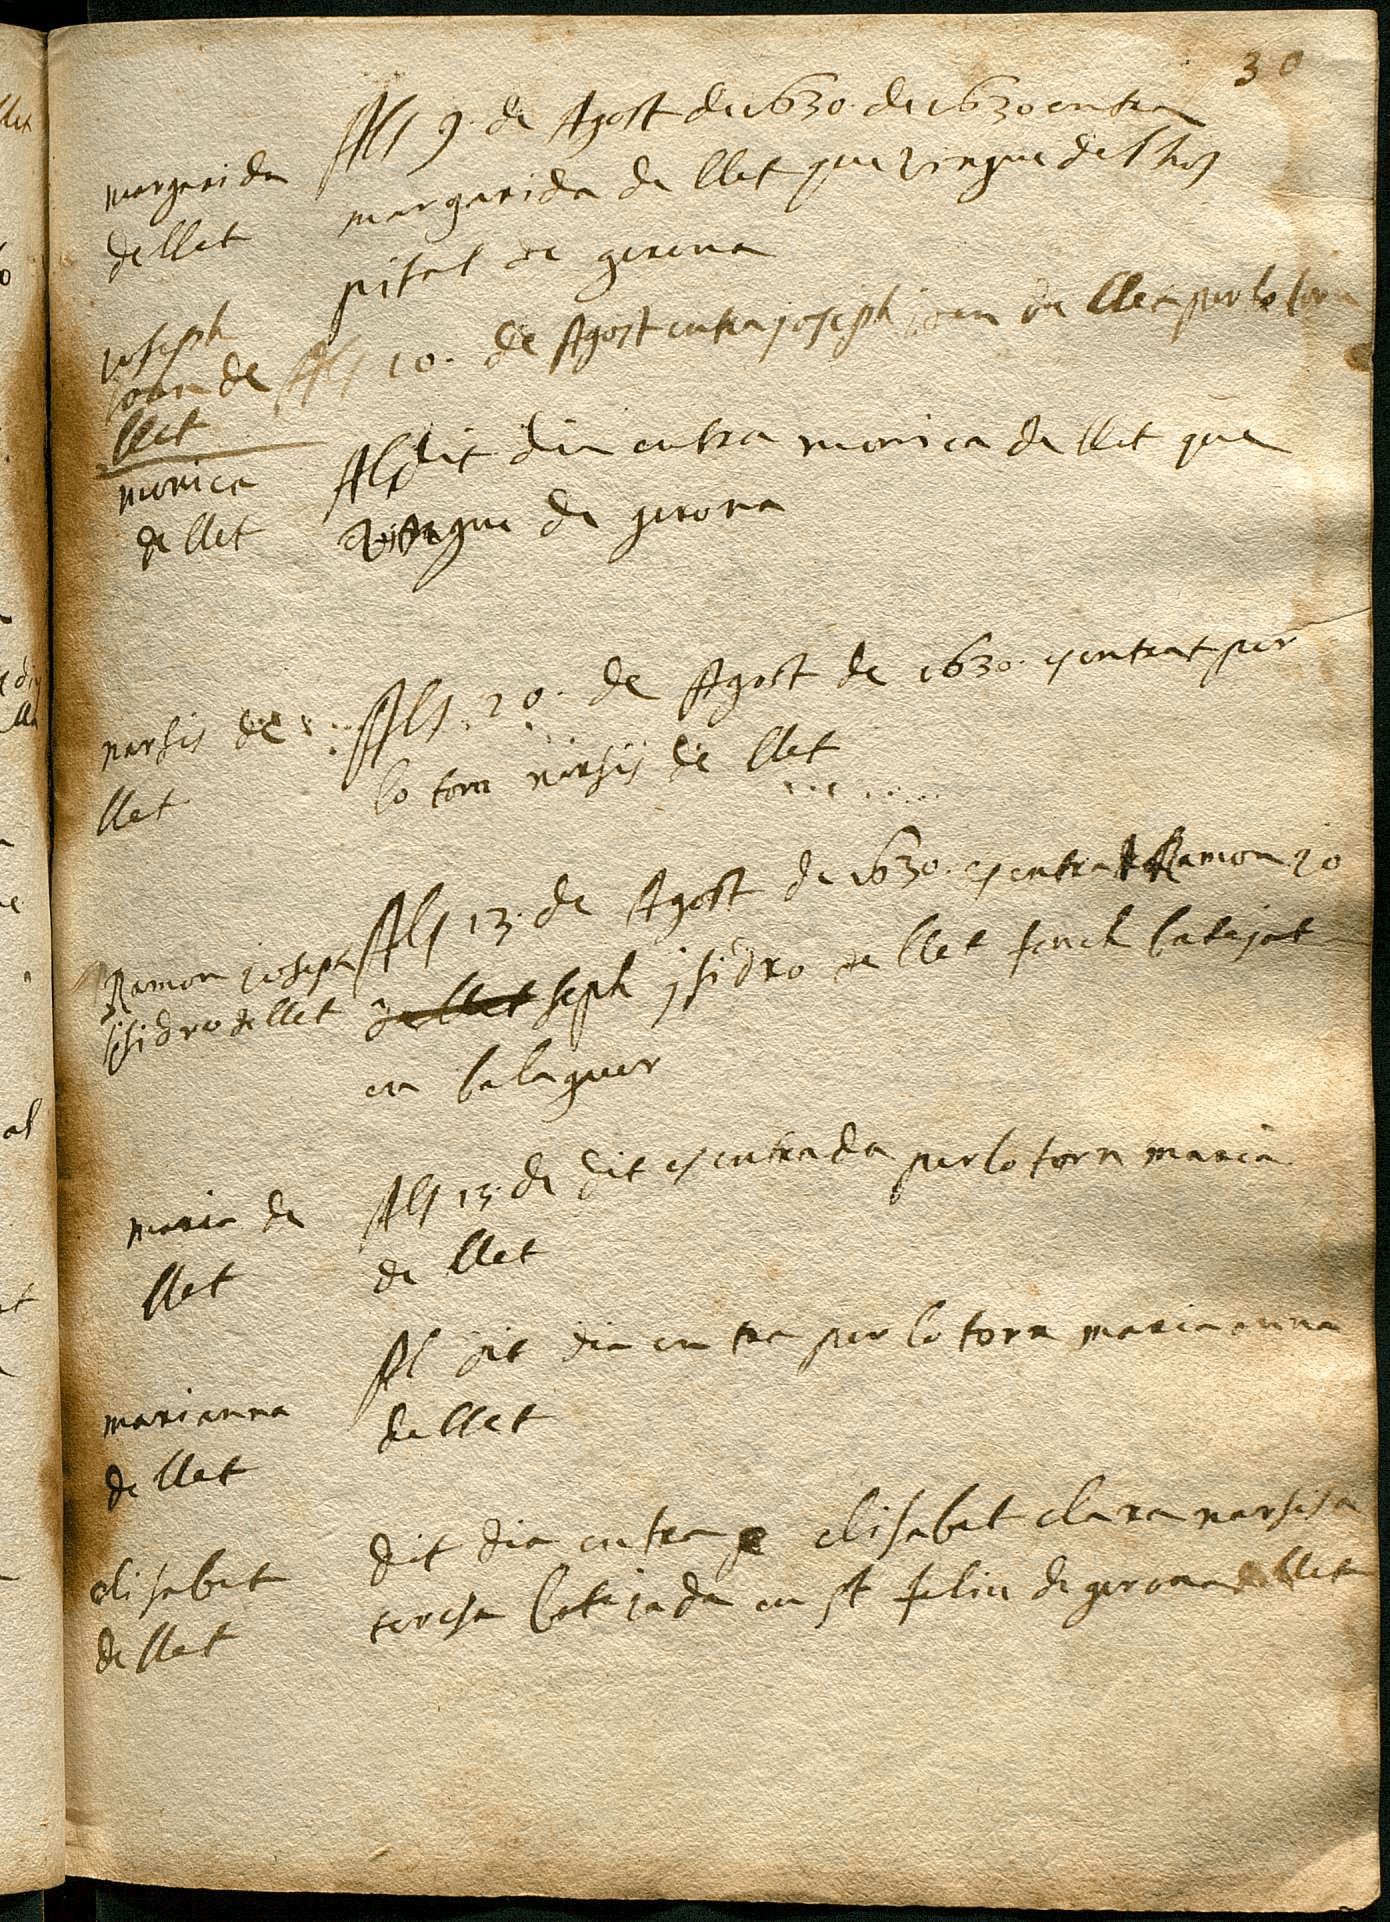 30
Als 9. de Agost de 1630. de 1630 entra
margarida
margarida de llet que vingue del hos
de llet
pital de gerona
joseph
joan de
Als 10. de Agost entra joseph joan de llet per lo torn
llet
monica
Als dit dia entra monica de llet que
de llet
vingue de gerona
narsis de
Als 20. de Agost de 1630. es entrat per
llet
lo torn narsis de llet
Als 13. de Agost de 1630. es entrat Ramon jo
Ramon joseph
isidro de llet
de llet seph isidro de llet fonch batejat
en balaguer
maria de
Als 15. de dit es entrada per lo torn maria
llet
de llet
Al dit dia entra per lo torn maria anna
marianna
de llet
de llet
dit dia entra elisabet clara narsisa
elisabet
teresa batejada en st feliu de gerona de llet
de llet